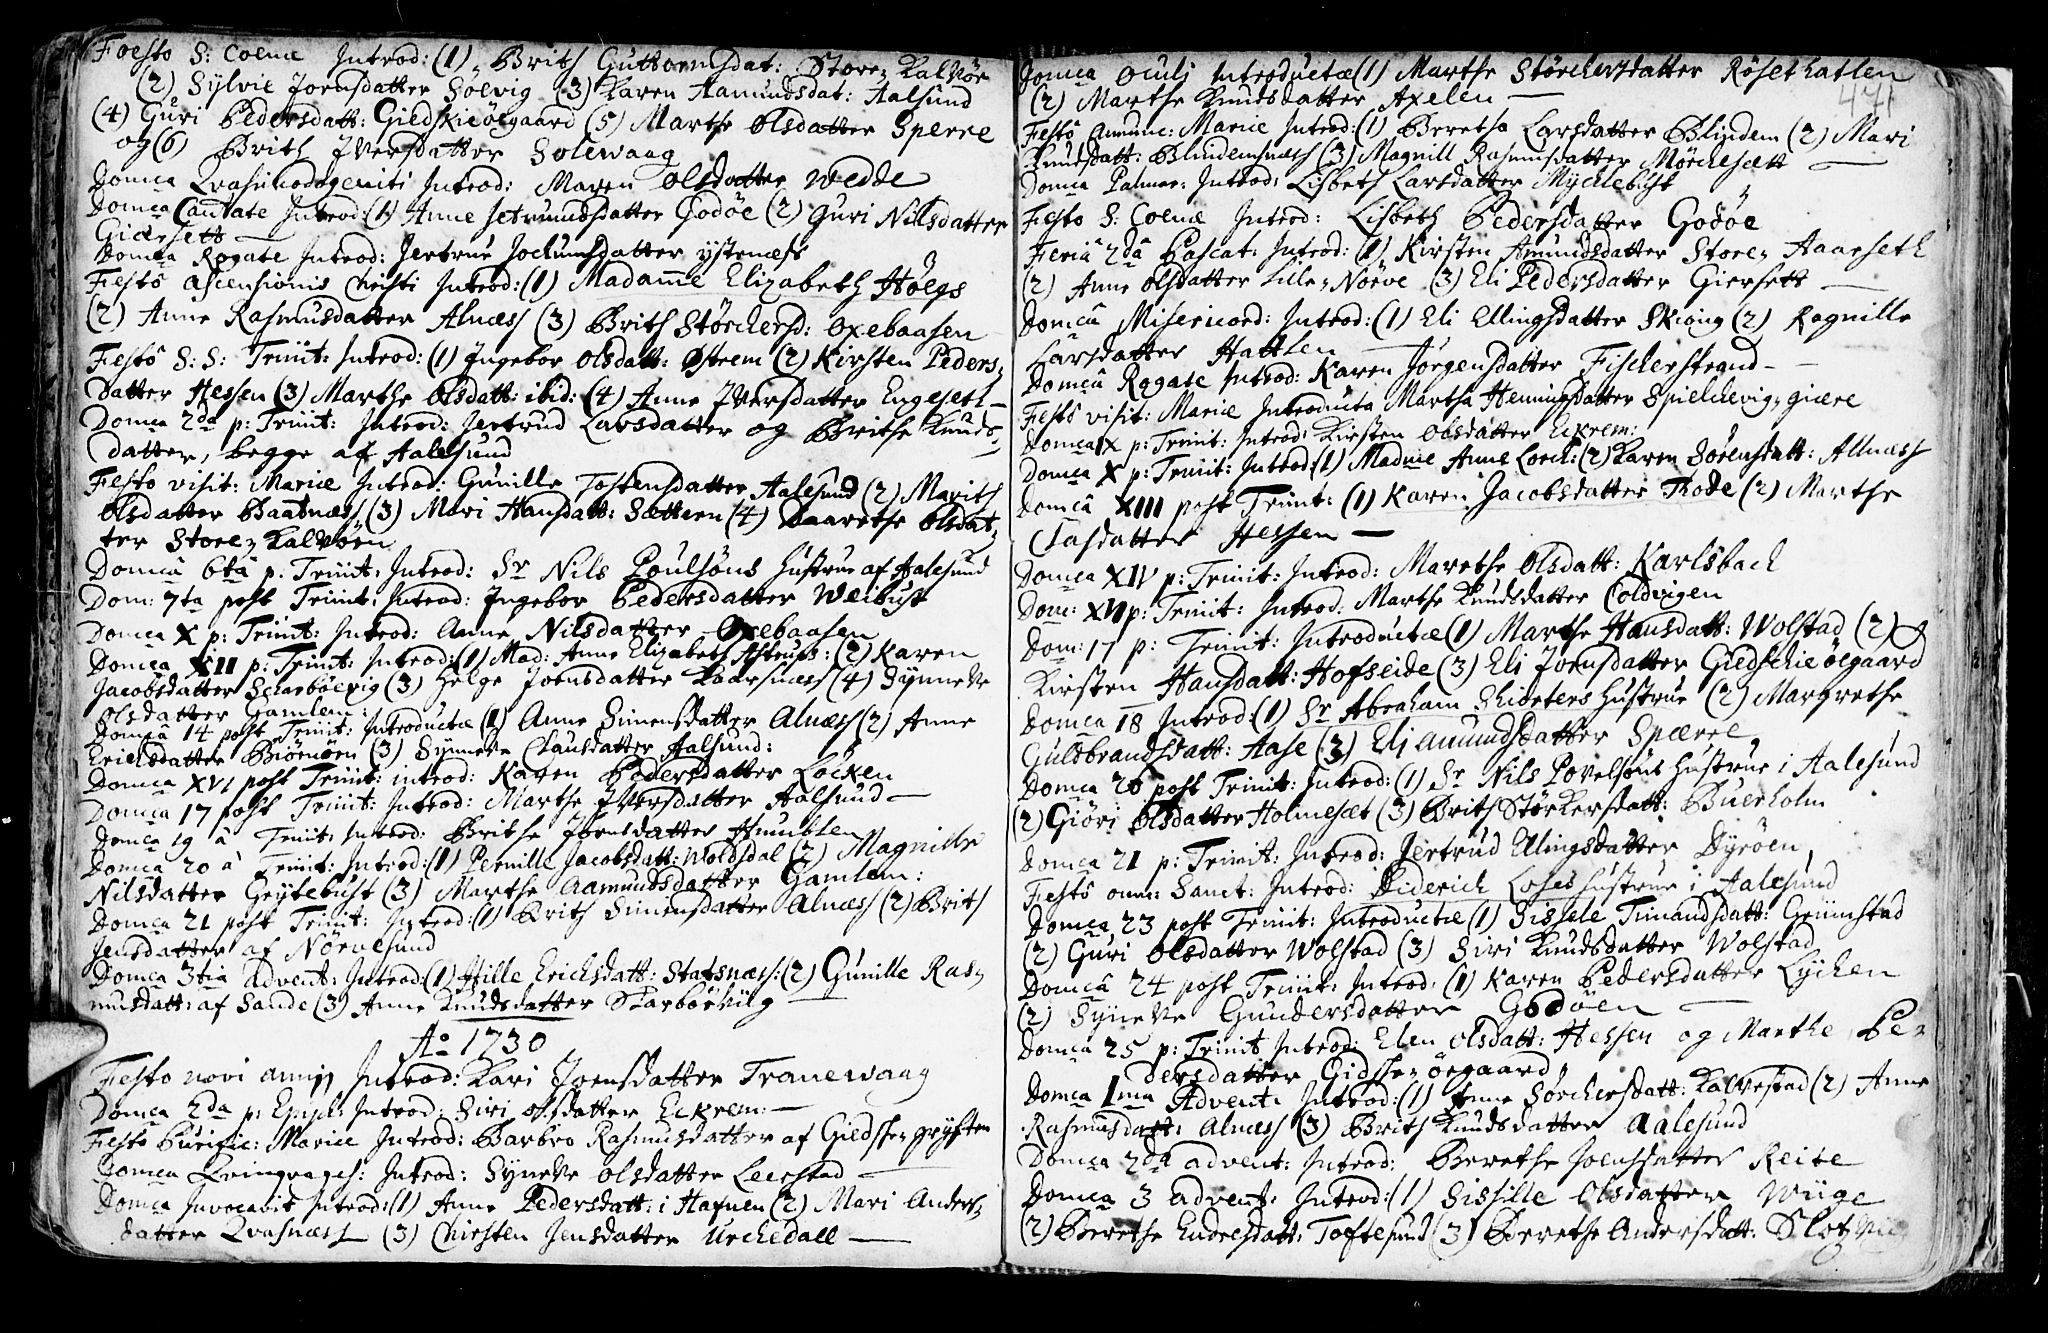 Foesto S: Coenæ Introd: (1) Brith Guttormsdat: Store, Kalvøe
(2) Sylvie Joensdatter Søevig (3) Karen Aamundsdat: Aalsund
(4) Guri Pedersdatt: Giedskieöegaard (5) Marthe Olsdatter Sperre
og (6) Brith Iversdatter Solewaag
Domca Qvasimodogeniti Introd: Maren Olsdatter Wedde
Domca Cantate Introd: (1) Anne Jetmundsdatter Godöe (2) Guri Nilsdatter
Giersett
Domca Rogate Introd: Jertrue Jochumsdatter ystenæss
Festo Ascensionis Christi Introd: (1) Madame Elizabeth Höegs
(2) Anne Rasmusdatter Alnæss (3) Brith Störchersd: Oxebaasen
Festo S: S: Trinit: Introd: (1) Ingebor Olsdatt: Østrem (2) Kirsten Peders,
datter Hessen (3) Marthe Olsdatt: ibid: (4) Anne Iversdatter Engeseth
Domca 2da p: Trinit: Introd: Jertrud Larsdatter og Brithe Knuds
datter, begge af Aalesund
Festo visit: Mariæ Introd: Gunille Tostensdatter Aalesund (2) Marith
Olsdatter Baatnæss (3) Mari Hansdatt: Sættern (4) Baarethe Olsdat,
ter Store, Kalvöen
Domca 6ta p: Trinit: Introd: Sr Nils Poulsöns Hustrue af Aalesund
Dom: 7ta post Trinit: Introd: Ingebor Pedersdatter Weibust
Domca X p: Trinit: Introd: Anne Nilsdatter Oxebaasen
Domca XII p: Trinit: Introd: (1) Mad: Anne Elizabeth Astrups: (2) Karen
Jacobsdatter Scharböevig (3) Helge Joensdatter Kaarsnæss (4) Synneve
Olsdatter Gamlem:
Domca 14 post Trinit: Introductæ (1) Anne Simensdatter Alnæss (2) Anne
Erichsdatter Biörnöen (3) Synneve Clausdatter Aalsund:
Domca XVI post Trinit: introd: Karen Pedersdatter Löcken
Domca 17 post Trinit: Introd: Marthe Iversdatter Aalsund
Domca 19 à Trinit: Introd: Brithe Joensdatter Humblen
Domca 20 à Trinit: Introd: (1) Pernille Jacobsdatt: Woldsdal (2) Magnille
Nilsdatter Grytebust (3) Marthe Aamundsdatter Gamlem:
Domca 21 post Trinit: Introd: (1) Brith Simensdatter Alnæss (2) Brith
Jensdatter af Nörvesund
Domca 3tia Advent: Introd: (1) Hille Erichsdatt: Statsnæss: (2) Gunille Ras,
musdatt: af Sande (3) Anne Knudsdatter Skarbövig
Ao 1730
Festo novi anni Introd: Kari Joensdatter Tranewaag
Domca 2da p: Epiph: Introd: Siri Olsdatter Eckrem:
Festo Purific: Mariæ Introd: Barbro Rasmusdatter af Giedske,
Domca Qvinqvages: Introd: Syneve Olsdatter Leerstad
Domca Invocavit Introd: (1) Anne Pedersdatt: i Hafnen (2) Mari Anders,
datter Qvasnæss (3) Chirsten Jensdatter Urckedall
Domca Oculi Introductæ (1) Marthe Störchersdatter Rösethatlen
471
(2) Marthe Knudsdatter Axelen
Festo Annunc: Mariæ Introd: (1) Beretha Larsdatter Blindem (2) Mari
Knudsdatt: Blindemsnæss (3) Magnill Rasmusdatter Mörchesætt
Domca Palmar: Introd: Lisbeth Larsdatter Mychlebust
Festo S: Coenæ Introd: Lisbeth Pedersdatter Godöe
Feria 2da Pascat: Introd: (1) Kirsten Amundsdatter Store, Aarseth
(2) Anne Olsdatter Lille, Nörve (3) Eli Pedersdatter Giersett
Domca Misericord: Introd: (1) Eli Ellingsdatter Skiong (2) Ragnille
Larsdatter Hattlen
Domca Rogate Introd: Karen Jörgensdatter Fischerstrand
Festo visit: Mariæ Introducta Martha Henningsdatter Spielchevig, giære
Domca IX p: Trinit: Introd: Kirsten Olsdatter Eckrem:
Domca X p: Trinit: Introd: (1) Madme Anne Lorck: (2) Karen Sörensdatt: Allnæss
Domca XIII post Trinit: (1) Karen Jacobsdatter Thode (2) Marthe
Clasdatter Hessen
Domca XIV p: Trinit: Introd: Marethe Olsdatt: Karlsbach
Dom: XVI p: Trinit: Introd: Marthe Knudsdatter Coldvigen
Dom: 17 p: Trinit: Introductæ (1) Marthe Hansdatt: Wolstad (2)
Kirsten Hansdatt: Hofseide (3) Eli Joensdatter Giedschieöegaard
Domca 18 Introd: (1) Sr Abraham Shiöeters Hustrue (2) Margrethe
Guldbrandsdatt: Aase (3) Eli Amundsdatter Spærre
Domca 20 post Trinit: Introd: (1) Sr Nils Povelsöns Hustrue i Aalesund
(2) Giöri Olsdatter Holmesæt (3) Brith Störkersdatt: Buerholm
Domca 21 p: Trinit: Introd: Jertrud Ellingsdatter Dyröen
Festo omn: Sanct: Introd: Diderich Loses Hustrue i Aalesund
Domca 23 post Trinit: Introductæ (1) Sissele Timandsdatt: Grimstad
(2) Guri Olsdatter Wolstad (3) Siri Knudsdatter Wolstad
Domca 24 post Trinit: Introd: (1) Karen Pedersdatter Lychen
(2) Syneve Gundersdatter Godöen
Domca 25 p: Trinit Introd: Elen Olsdatt: Hessen og Marthe Pe,
dersdatter Gidske, öegaard
Domca 1ma Advent: Introd: (1) Anne Sörchersdatt: Kalvestad (2) Anne
Rasmusdatt: Alnæss (3) Brith Knudsdatter Aalesund
Domca 2da Advent: Introd: Berethe Joensdatter Reite
Domca 3 Advent: Introd: (1) Sissille Olsdatter Wiige
(2) Berethe Endresdatt: Toftesund (3) Berethe Andersdatt: